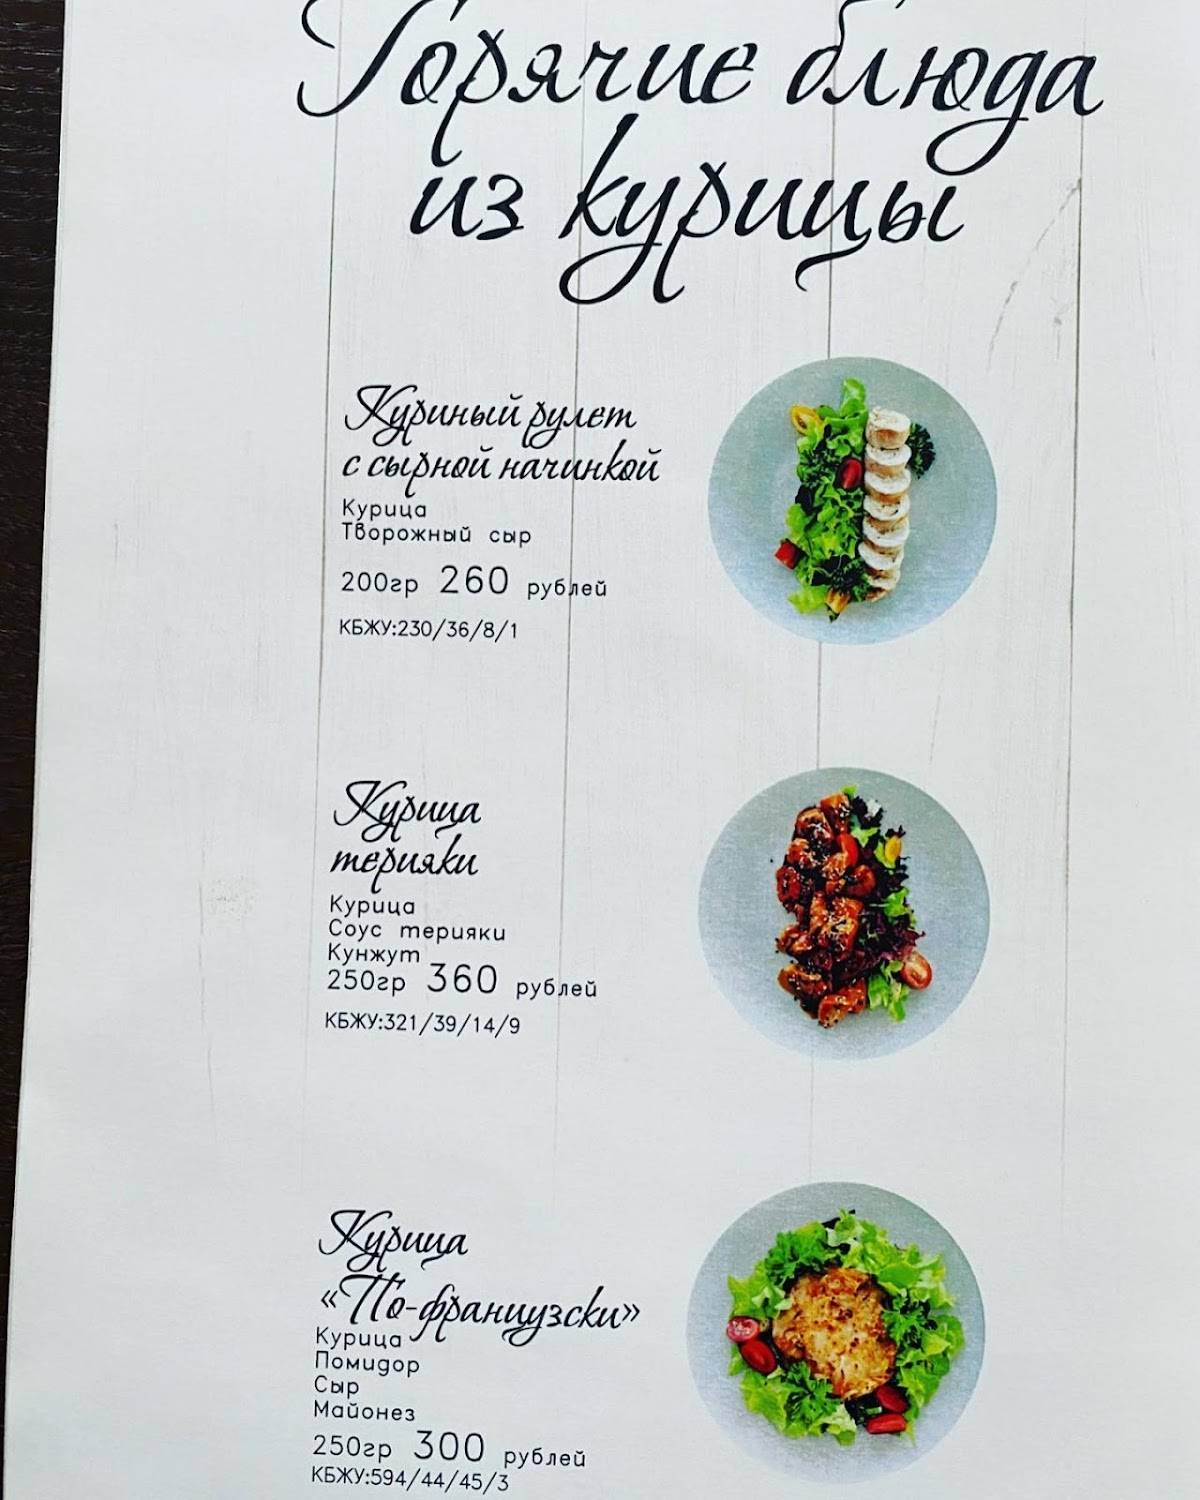 Горячие блюда
из курицы
Куриный рулет
с сырной начинкой
Курица
Творожный сыр
200гр 260 рублей
КБЖУ:230/36/8/1
Курица
терияки
Курица
Соус терияки
Кунжут
250гр 360 рублей
КБЖУ:321/39/14/9
Курица
«По-французски»
Курица
Помидор
Сыр
Майонез
250гр 300 рублей
КБЖУ:594/44/45/3